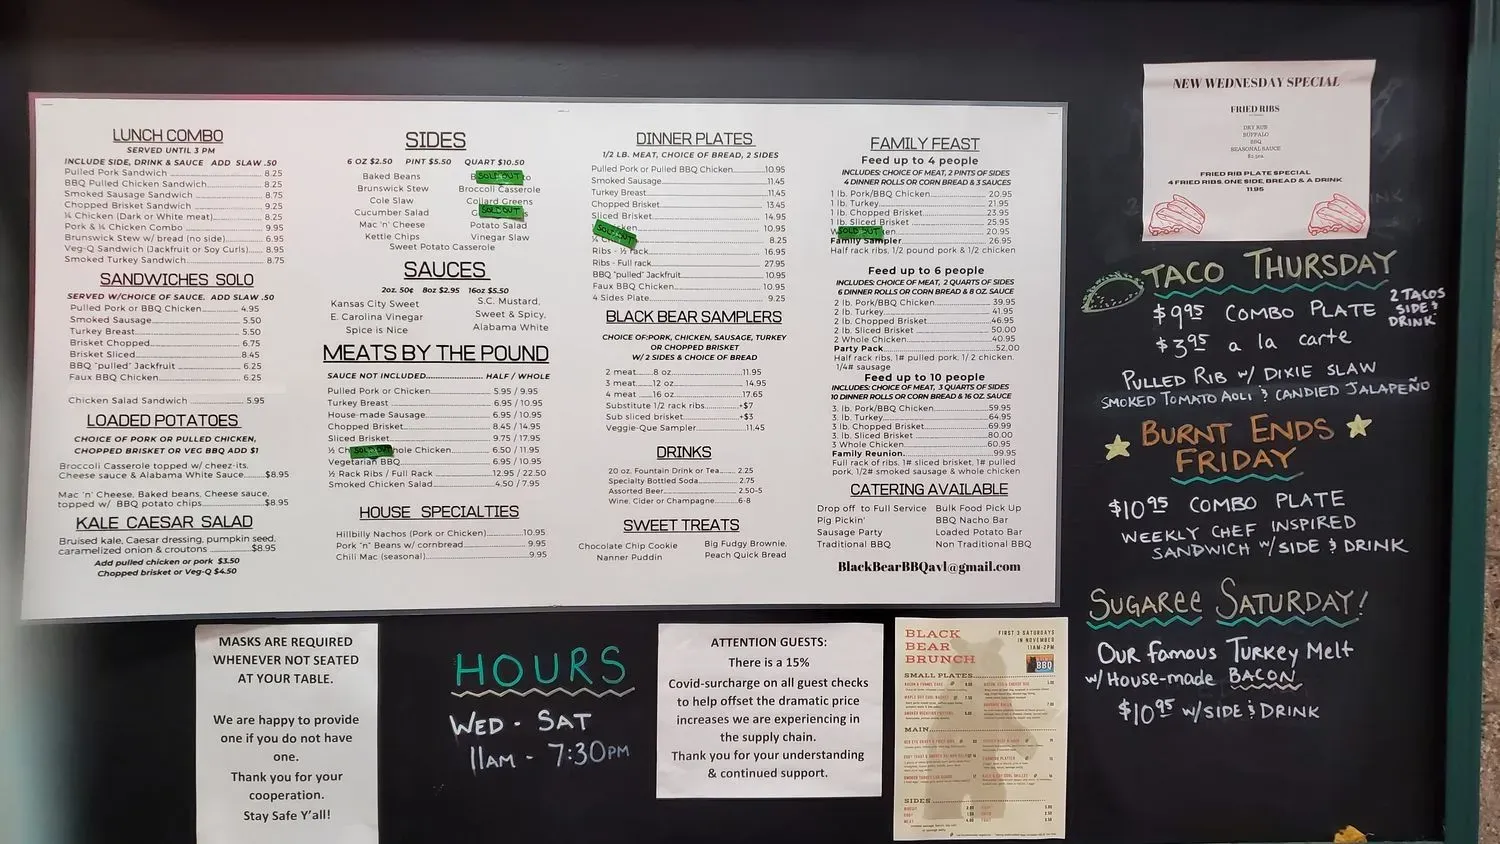 LUNCH COMBO
SERVED UNTIL 3 PM
INCLUDE SIDE, DRINK & SAUCE ADD SLAW .50
Pulled Pork Sandwich 8.25
BBQ Pulled Chicken Sandwich 8.25
Smoked Sausage Sandwich 8.75
Chopped Brisket Sandwich 9.25
¼ Chicken (Dark or White meat) 8.25
Pork & ¼ Chicken Combo 9.95
Brunswick Stew w/ bread (no side) 6.95
Veg-Q Sandwich (Jackfruit or Soy Curls) 8.95
Smoked Turkey Sandwich 8.75
SANDWICHES SOLO
SERVED W/CHOICE OF SAUCE. ADD SLAW .50
Pulled Pork or BBQ Chicken 4.95
Smoked Sausage 5.50
Turkey Breast 5.50
Brisket Chopped 6.75
Brisket Sliced 8.45
BBQ "pulled" Jackfruit 6.25
Faux BBQ Chicken 6.25
Chicken Salad Sandwich 5.95
LOADED POTATOES
CHOICE OF PORK OR PULLED CHICKEN,
CHOPPED BRISKET OR VEG BBQ ADD $1
Broccoli Casserole topped w/ cheez-its,
Cheese sauce & Alabama White Sauce $8.95
Mac 'n' Cheese, Baked beans, Cheese sauce,
topped w/ BBQ potato chips $8.95
KALE CAESAR SALAD
Bruised kale, Caesar dressing, pumpkin seed,
caramelized onion & croutons $8.95
Add pulled chicken or pork $3.50
Chopped brisket or Veg-Q $4.50
SIDES
6 OZ $2.50 PINT $5.50 QUART $10.50
Baked Beans SOLD OUT
Brunswick Stew Broccoli Casserole
Cole Slaw Collard Greens
Cucumber Salad SOLD OUT
Mac 'n' Cheese Potato Salad
Kettle Chips Vinegar Slaw
Sweet Potato Casserole
SAUCES
2oz. 50¢ 8oz $2.95 16oz $5.50
Kansas City Sweet S.C. Mustard,
E. Carolina Vinegar Sweet & Spicy,
Spice is Nice Alabama White
MEATS BY THE POUND
SAUCE NOT INCLUDED HALF / WHOLE
Pulled Pork or Chicken 5.95 / 9.95
Turkey Breast 6.95 / 10.95
House-made Sausage 6.95 / 10.95
Chopped Brisket 8.45 / 14.95
Sliced Brisket 9.75 / 17.95
½ Ch SOLD OUT hole Chicken 6.50 / 11.95
Vegetarian BBQ 6.95 / 10.95
½ Rack Ribs / Full Rack 12.95 / 22.50
Smoked Chicken Salad 4.50 / 7.95
HOUSE SPECIALTIES
Hillbilly Nachos (Pork or Chicken) 10.95
Pork "n" Beans w/ cornbread 9.95
Chili Mac (seasonal) 9.95
DINNER PLATES
1/2 LB. MEAT, CHOICE OF BREAD, 2 SIDES
Pulled Pork or Pulled BBQ Chicken 10.95
Smoked Sausage 11.45
Turkey Breast 11.45
Chopped Brisket 13.45
Sliced Brisket 14.95
SOLD OUT ken 10.95
¼ 8.25
Ribs - ½ rack 16.95
Ribs - Full rack 27.95
BBQ "pulled" Jackfruit 10.95
Faux BBQ Chicken 10.95
4 Sides Plate 9.25
BLACK BEAR SAMPLERS
CHOICE OF:PORK, CHICKEN, SAUSAGE, TURKEY
OR CHOPPED BRISKET
W/ 2 SIDES & CHOICE OF BREAD
2 meat 8 oz 11.95
3 meat 12 oz 14.95
4 meat 16 oz 17.65
Substitute 1/2 rack ribs +$7
Sub sliced brisket +$3
Veggie-Que Sampler 11.45
DRINKS
20 oz. Fountain Drink or Tea 2.25
Specialty Bottled Soda 2.75
Assorted Beer 2.50-5
Wine, Cider or Champagne 6-8
SWEET TREATS
Chocolate Chip Cookie Big Fudgy Brownie,
Nanner Puddin Peach Quick Bread
FAMILY FEAST
Feed up to 4 people
INCLUDES: CHOICE OF MEAT, 2 PINTS OF SIDES
4 DINNER ROLLS OR CORN BREAD & 3 SAUCES
1 lb. Pork/BBQ Chicken 20.95
1 lb. Turkey 21.95
1 lb. Chopped Brisket 23.95
1 lb. Sliced Brisket 25.95
W SOLD OUT ken 20.95
Family Sampler 26.95
Half rack ribs, 1/2 pound pork & 1/2 chicken
Feed up to 6 people
INCLUDES: CHOICE OF MEAT, 2 QUARTS OF SIDES
6 DINNER ROLLS OR CORN BREAD & 8 OZ. SAUCE
2 lb. Pork/BBQ Chicken 39.95
2 lb. Turkey 41.95
2 lb. Chopped Brisket 46.95
2 lb. Sliced Brisket 50.00
2 Whole Chicken 40.95
Party Pack 52.00
Half rack ribs, 1# pulled pork, 1/2 chicken,
1/4# sausage
Feed up to 10 people
INCLUDES: CHOICE OF MEAT, 3 QUARTS OF SIDES
10 DINNER ROLLS OR CORN BREAD & 16 OZ. SAUCE
3. lb. Pork/BBQ Chicken 59.95
3. lb. Turkey 64.95
3 lb. Chopped Brisket 69.99
3. lb. Sliced Brisket 80.00
3 Whole Chicken 60.95
Family Reunion 99.95
Full rack of ribs, 1# sliced brisket, 1# pulled
pork, 1/2# smoked sausage & whole chicken
CATERING AVAILABLE
Drop off to Full Service Bulk Food Pick Up
Pig Pickin' BBQ Nacho Bar
Sausage Party Loaded Potato Bar
Traditional BBQ Non Traditional BBQ
BlackBearBBQavl@gmail.com
NEW WEDNESDAY SPECIAL
FRIED RIBS
DRY RUB
BUFFALO
BBQ
SEASONAL SAUCE
FRIED RIB PLATE SPECIAL
4 FRIED RIBS, ONE SIDE, BREAD & A DRINK
11.95
TACO THURSDAY
$9.95 COMBO PLATE 2 TACOS SIDE & DRINK
$3.95 a la carte
PULLED RIB W/ DIXIE SLAW
SMOKED TOMATO AOLI & CANDIED JALAPEÑO
BURNT ENDS
FRIDAY
$10.95 COMBO PLATE
WEEKLY CHEF INSPIRED
SANDWICH W/SIDE & DRINK
SUGAREE SATURDAY!
OUR famous Turkey Melt
w/House-made BACON
$10.95 W/SIDE & DRINK
MASKS ARE REQUIRED
WHENEVER NOT SEATED
AT YOUR TABLE.
We are happy to provide
one if you do not have
one.
Thank you for your
cooperation.
Stay Safe Y'all!
HOURS
WED - SAT
11AM - 7:30PM
ATTENTION GUESTS:
There is a 15%
Covid-surcharge on all guest checks
to help offset the dramatic price
increases we are experiencing in
the supply chain.
Thank you for your understanding
& continued support.
BLACK
BEAR
BRUNCH
FIRST 3 SATURDAYS
IN NOVEMBER
11AM-2PM
BBQ
SMALL PLATES
MAIN
SIDES